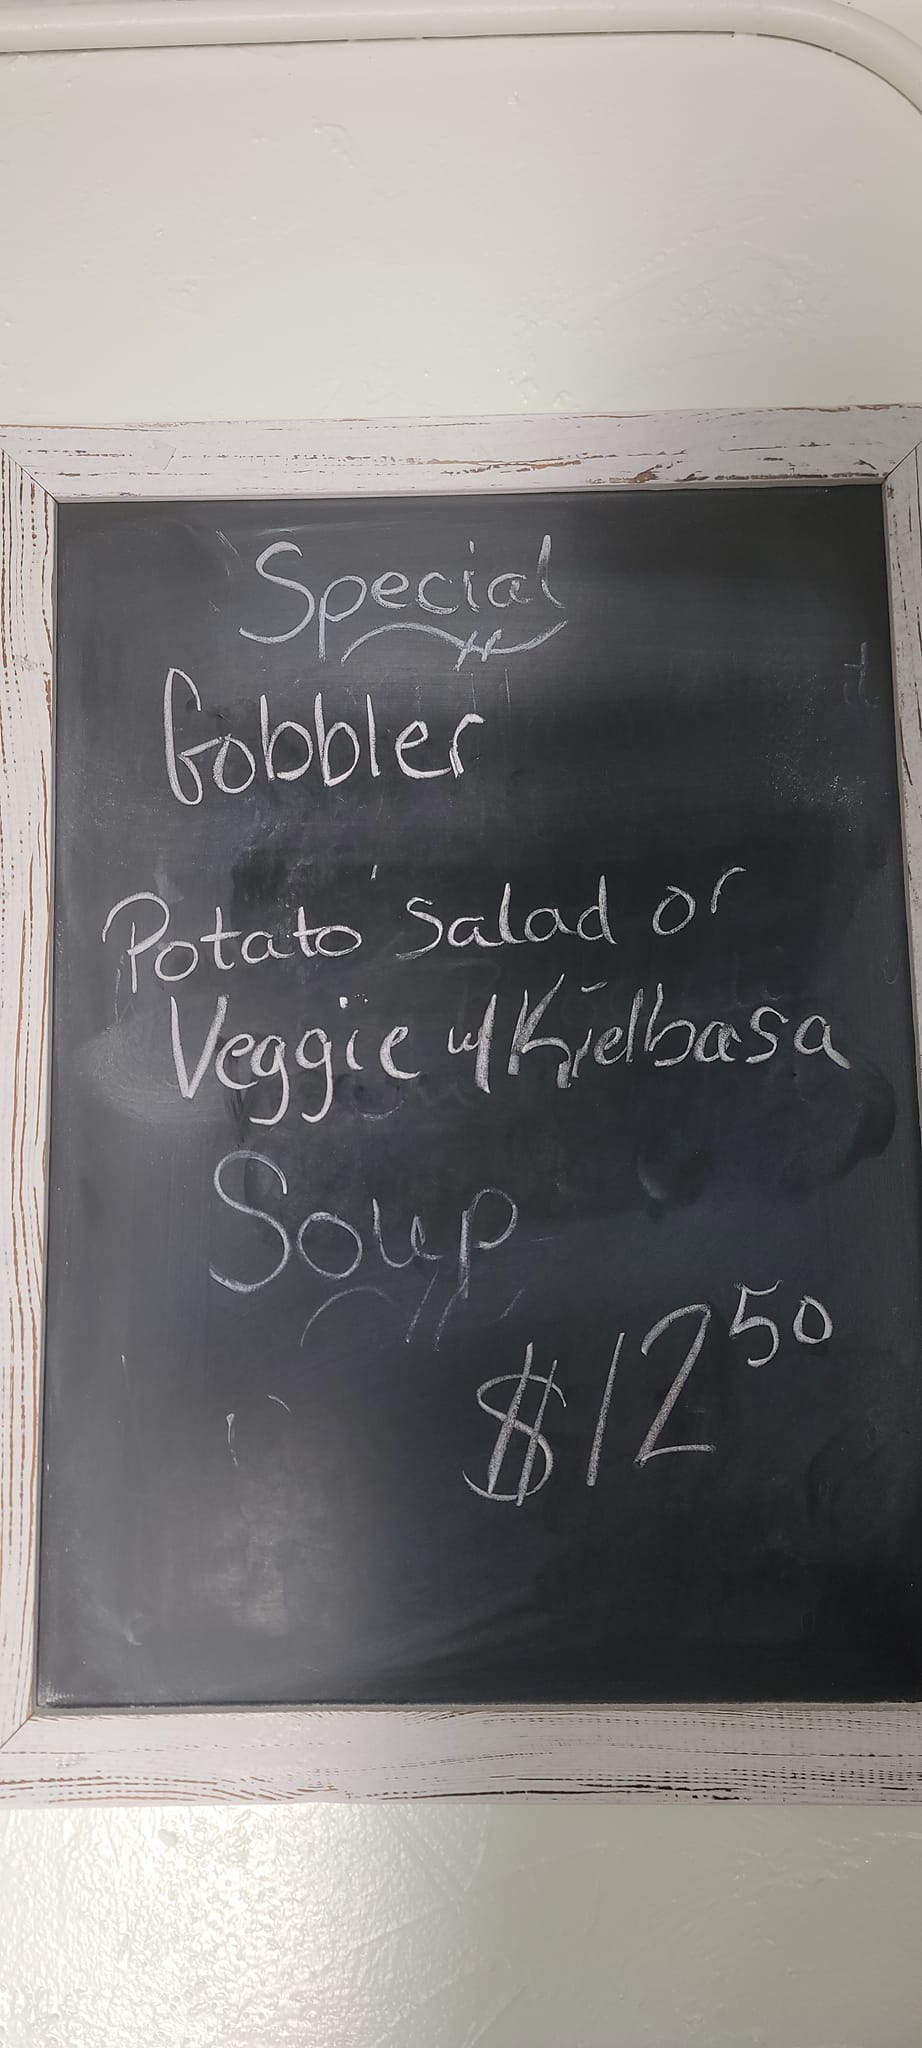 Special
Gobbler
Potato Salad or
Veggie w/ Kielbasa
Soup
$12.50